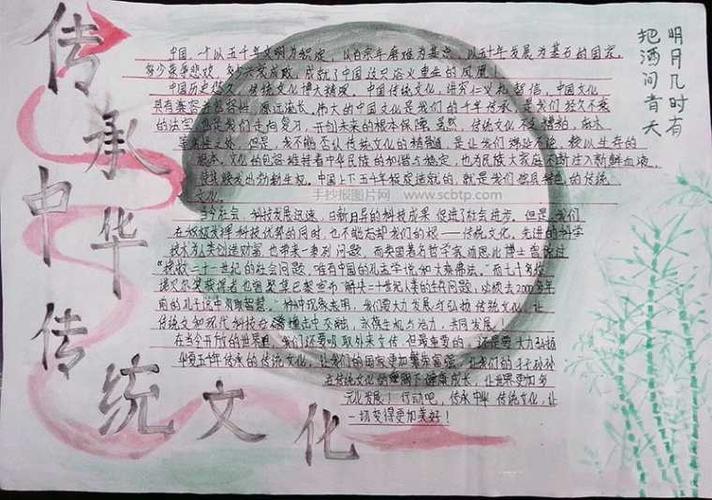 传承中华传统文化
明月几时有
把酒问青天
中国,一个以五千年文明为积淀,以百余年磨难为基点,以五十年发展为基石的国家。
多少豪景悲欢,多少兴衰成败,成就了中国这只浴火重生的凤凰!
中国历史悠久,传统文化博大精深。中国传统文化,讲究仁义礼智信,中国文化
具有兼容并蓄的性,源远流长,伟大的中国文化是我们的千年传承,是我们经久不衰
的法宝,也是我们走向复兴,开创未来的根本保障。虽然,传统文化不是糟粕,麻木
之处,但是,我不能否认传统文化的精髓,是让我们难忘不
文化的包容维持着中华民族的和谐与稳定,也为民族大家庭不断注入新鲜血液,
使华夏发出勃勃生机。中国上下五千年
文化。
手抄报图片网 www.scbtp.com
当今社会,科技发展迅速,日新月异的科技成果促进了社会进步。但是,我们
在积极发挥科技优势的同时,也不能忘却我们的根——传统文化。先进的科学
技术为人类创造财富,也带来一系列问题,而英国著名哲学家汤恩比博士曾说过
“拯救二十一世纪的社会问题,唯有中国的孔孟学说和大乘佛法。”而七十多位
诺贝尔奖获得者也曾聚集巴黎宣布“解决二十世纪人类的生存问题,必须去2000多年
前的孔子这中汲取智慧。”种种现象表明,我们要大力发展与弘扬传统文化,让
传统文和现代科技在碰撞击中交融,永葆生机与活力,共同发展!
在当今开放的世界里,我们还要吸取外来文,但最重要的,还是要大力弘扬
华夏五千年传承的传统文化,让我们的国家更加繁荣富强,让我们的子孙
在传统文化的下健康成长,让世界更加多
元化发展!行动吧,传承中华传统文化,让
一切变得更加美好!